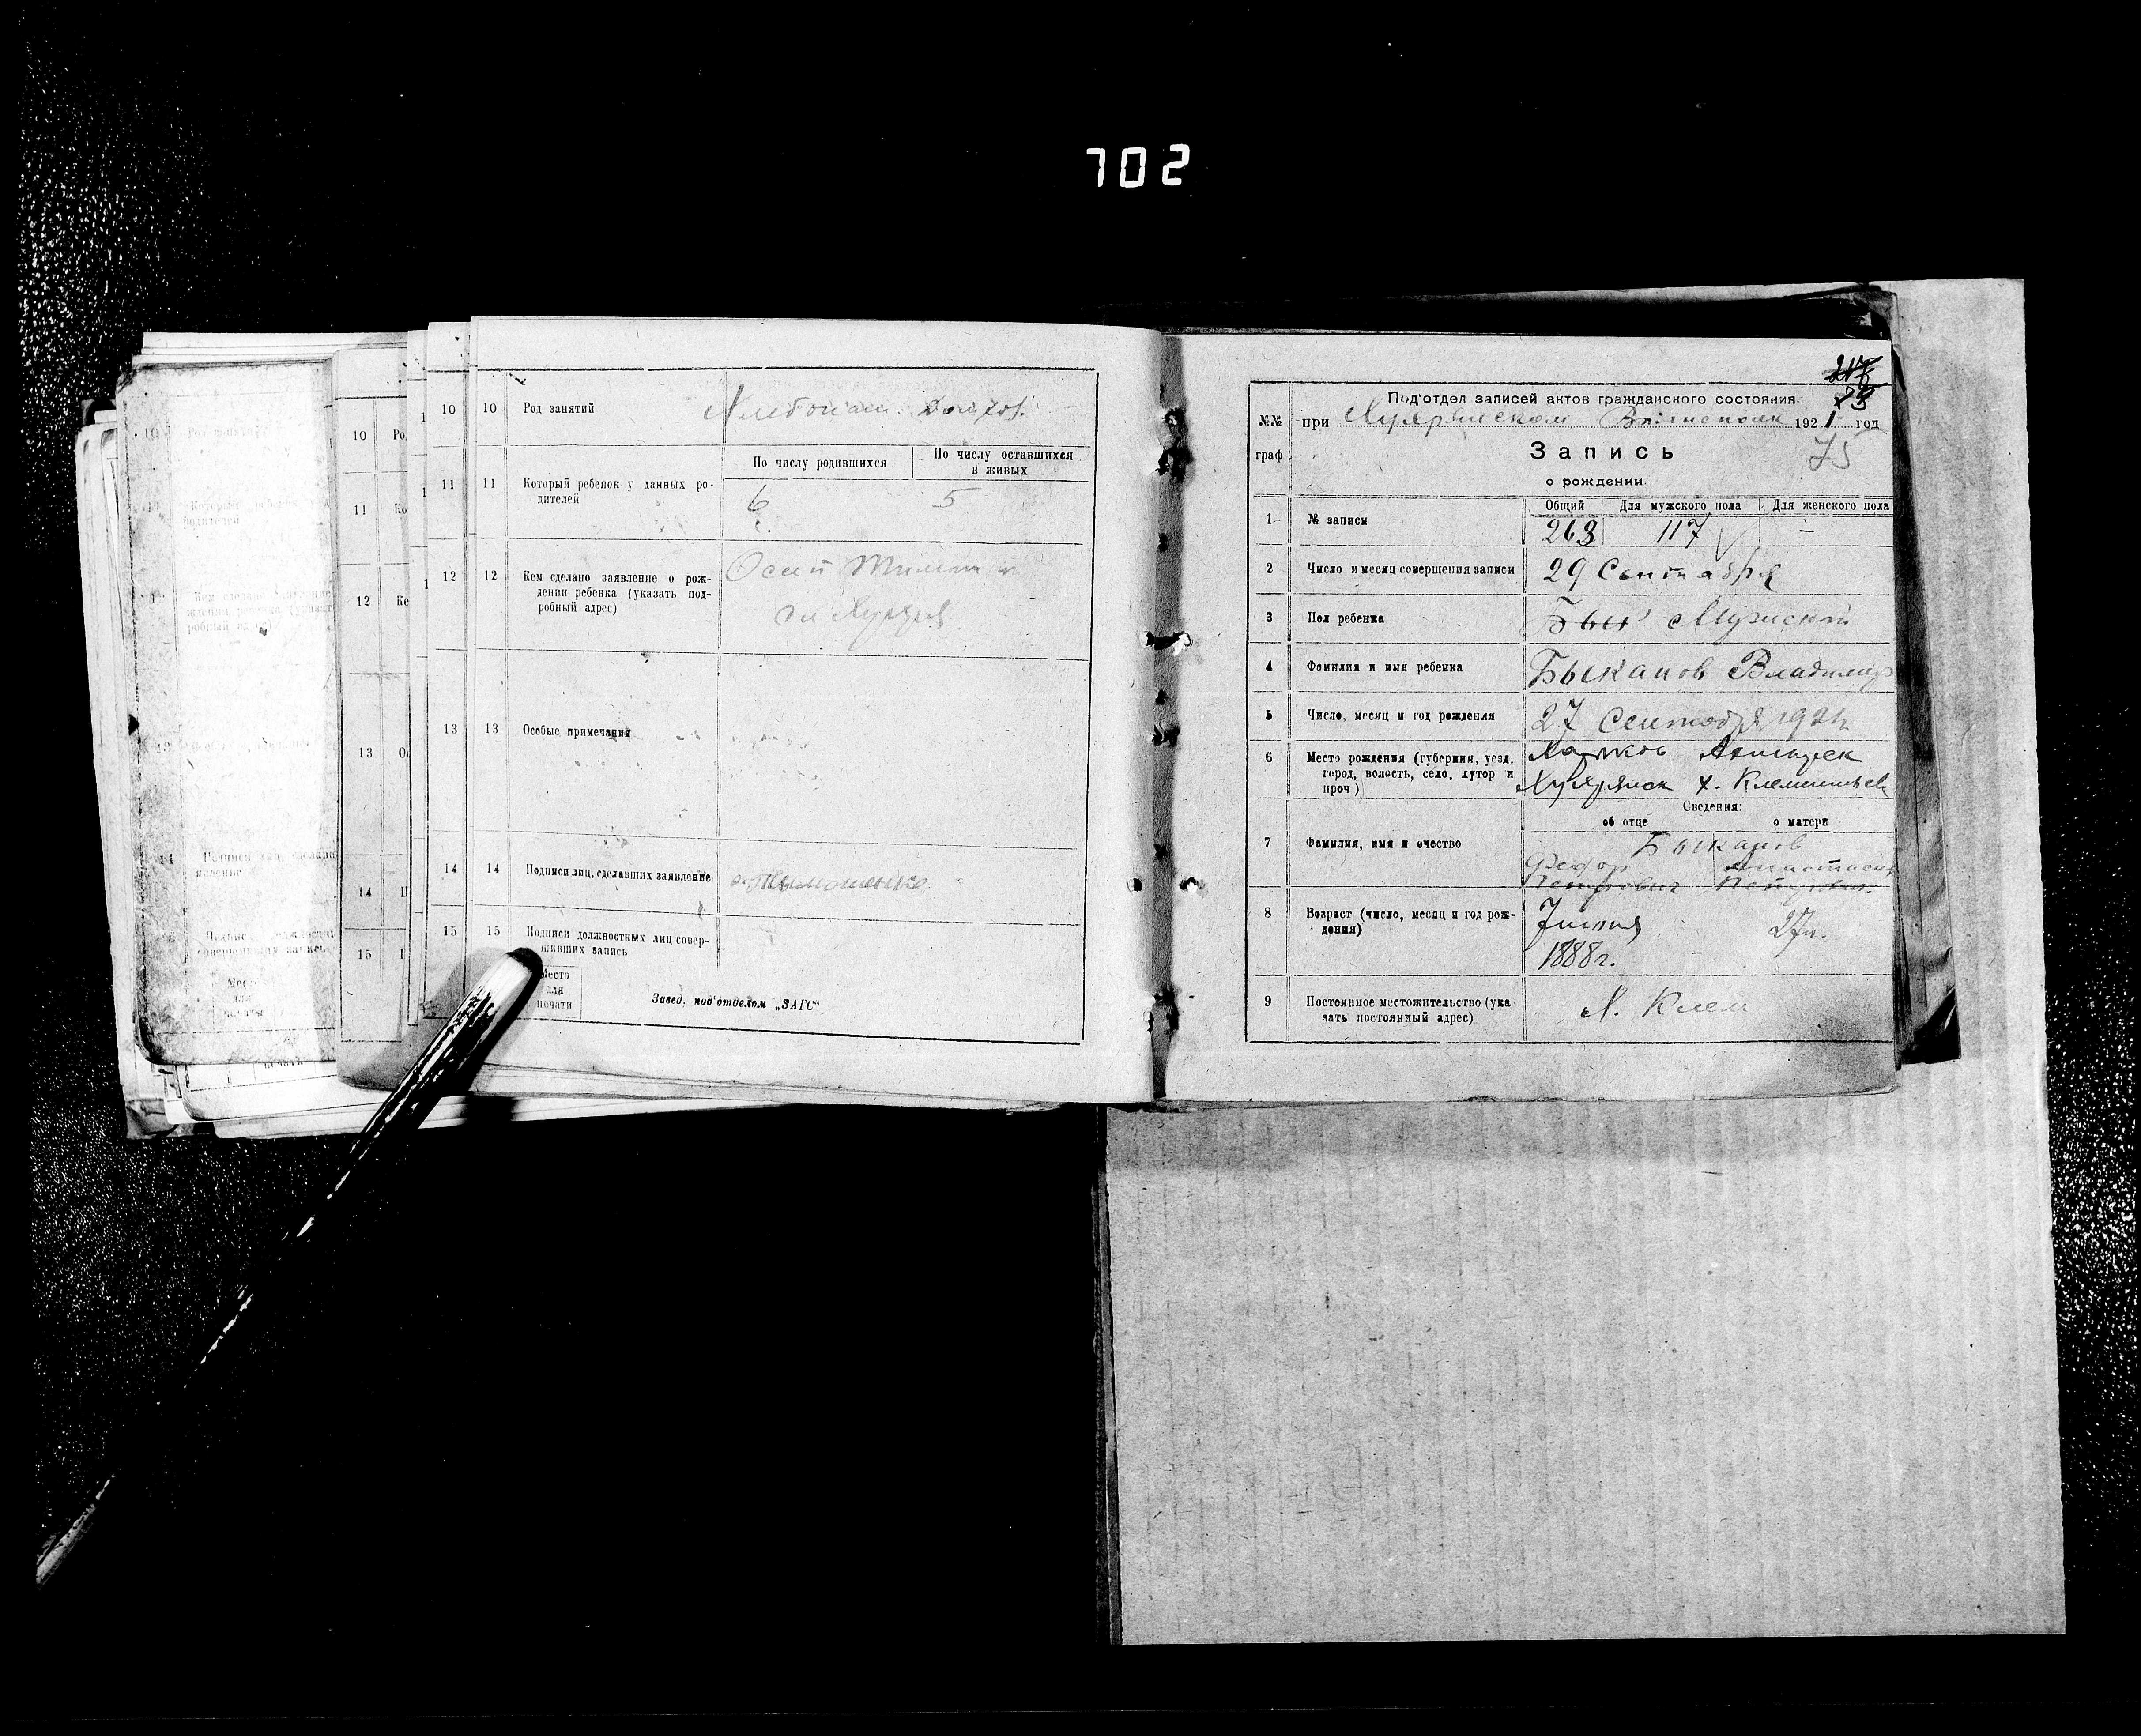 702
10 10 Род занятий Хлебопаш. Домхоз.
По числу родившихся По числу оставшихся в живых
11 11 Который ребенок у данных родителей
6 5
12 12 Кем сделано заявление о рождении ребенка (указать подробный адрес)
Осип Тимош
сл Хухря
13 13 Особые примечания
14 14 Подписи лиц, сделавших заявление
Тимошенко
15 15 Подписи должностных лиц совершивших запись
Место
для
печати
Завед. под'отделом „ЗАГС“
10 Ро
11 Ко
12 Ке
13 О
14 П
15 П
73
Под'отдел записей актов гражданского состояния.
№№ при Хухрянском Волисполк 1921 год
граф
Запись 75
о рождении
Общий Для мужского пола Для женского пола
1 № записи 263 117 –
2 Число и месяц совершения записи 29 Сентября
3 Пол ребенка Бык Мужской
4 Фамилия и имя ребенка Быканов Владимир
5 Число, месяц и год рождения 27 Сентября 1921
6 Место рождения (губерния, уезд,
город, волость, село, хутор и
проч)
Харьков Ахтырск
Хухрянск х. Клементьев
Сведения:
об отце о матери
7 Фамилия, имя и очество
Быканов
Федор Анастасия
Петрович Петровна
8 Возраст (число, месяц и год рождения)
7 июня 27л.
1888г.
9 Постоянное местожительство (указать постоянный адрес)
Х. Клем